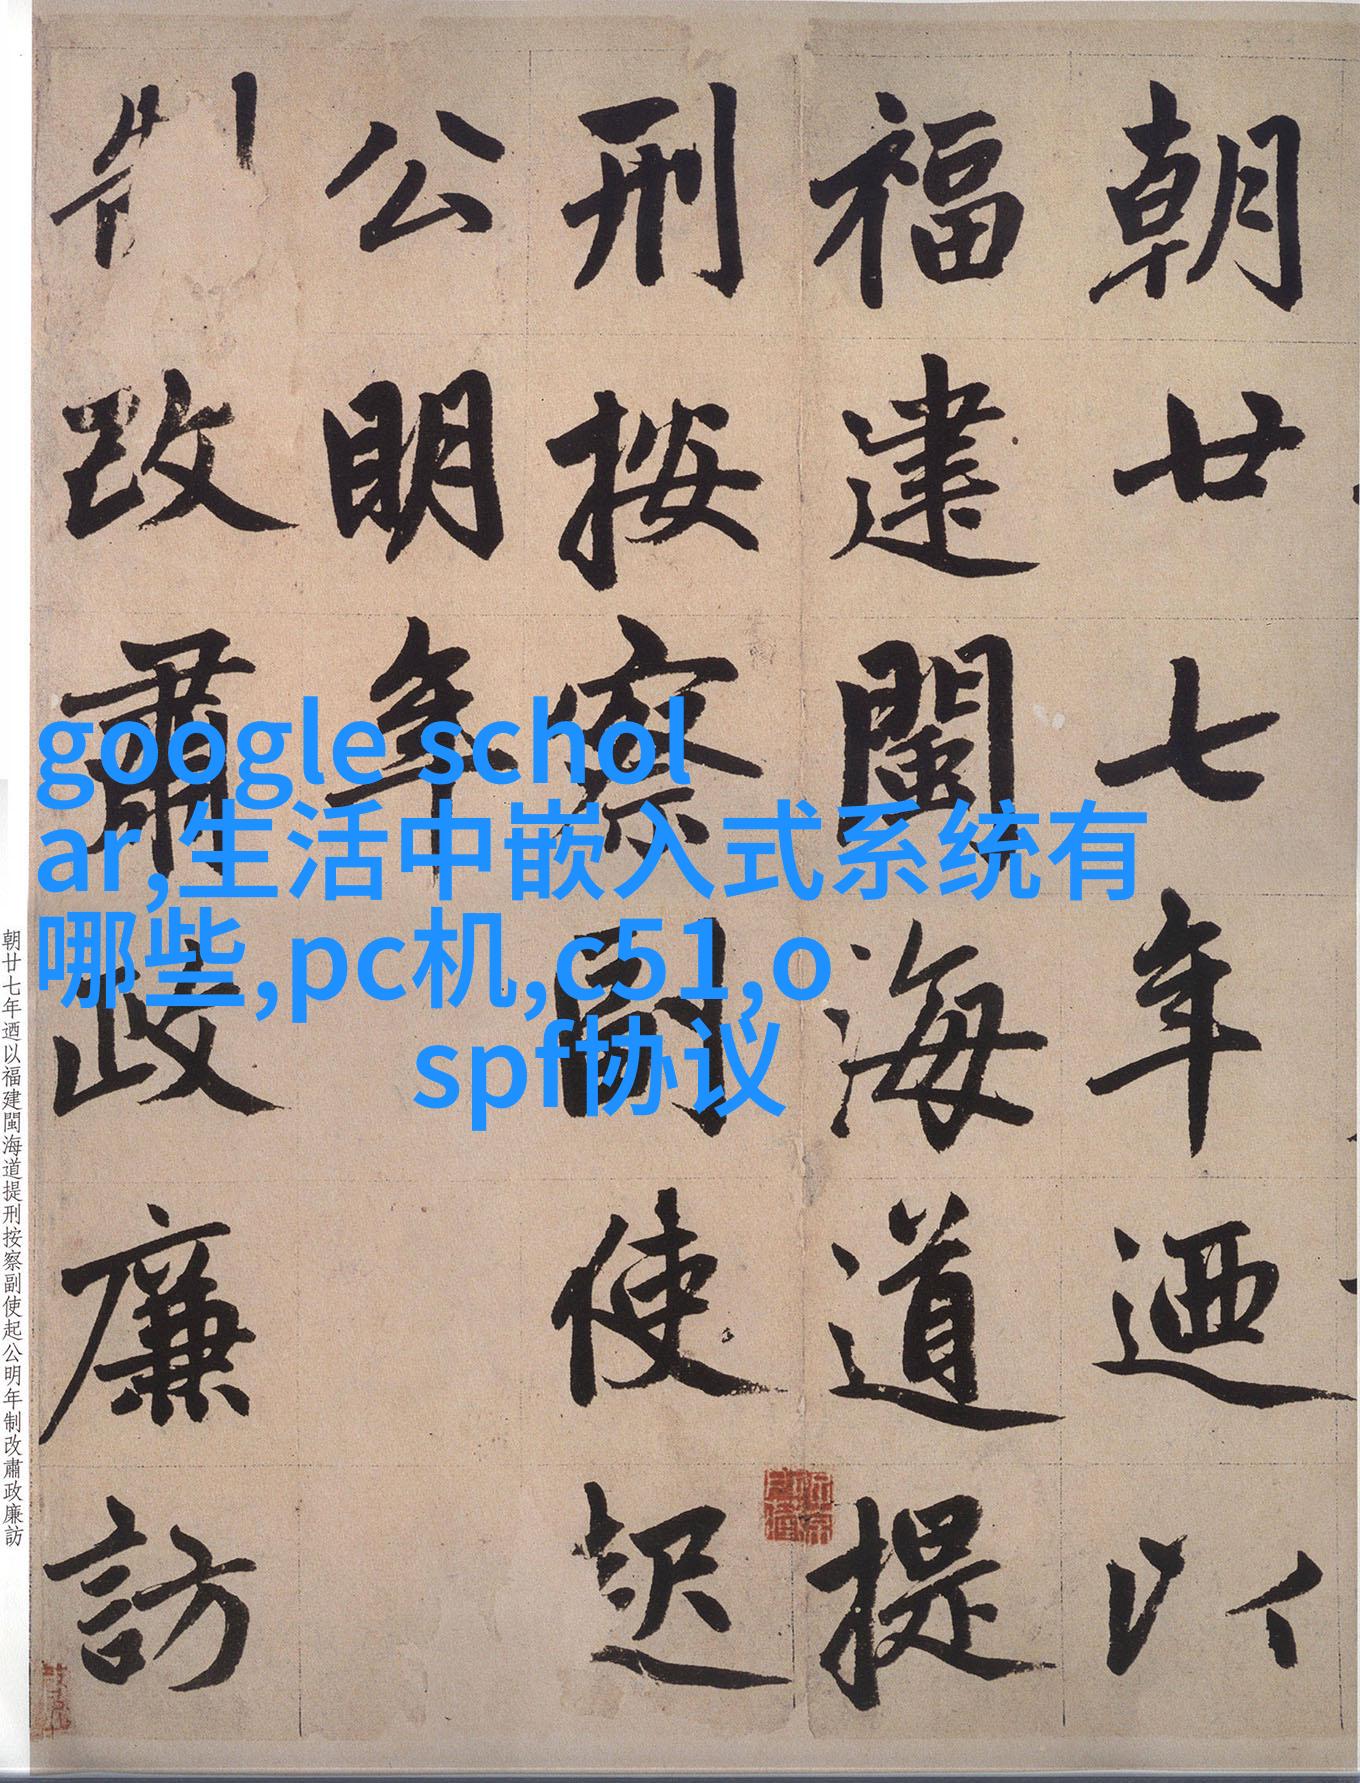 朝廿七年迺以
福建閩海道提
刑按察副使起
公明年
制改肅政廉訪
google schol
ar,生活中嵌入式系统有
哪些,pc机,c51,o
spf协议
朝廿七年迺以福建閩海道提刑按察副使起公明年制改肅政廉訪